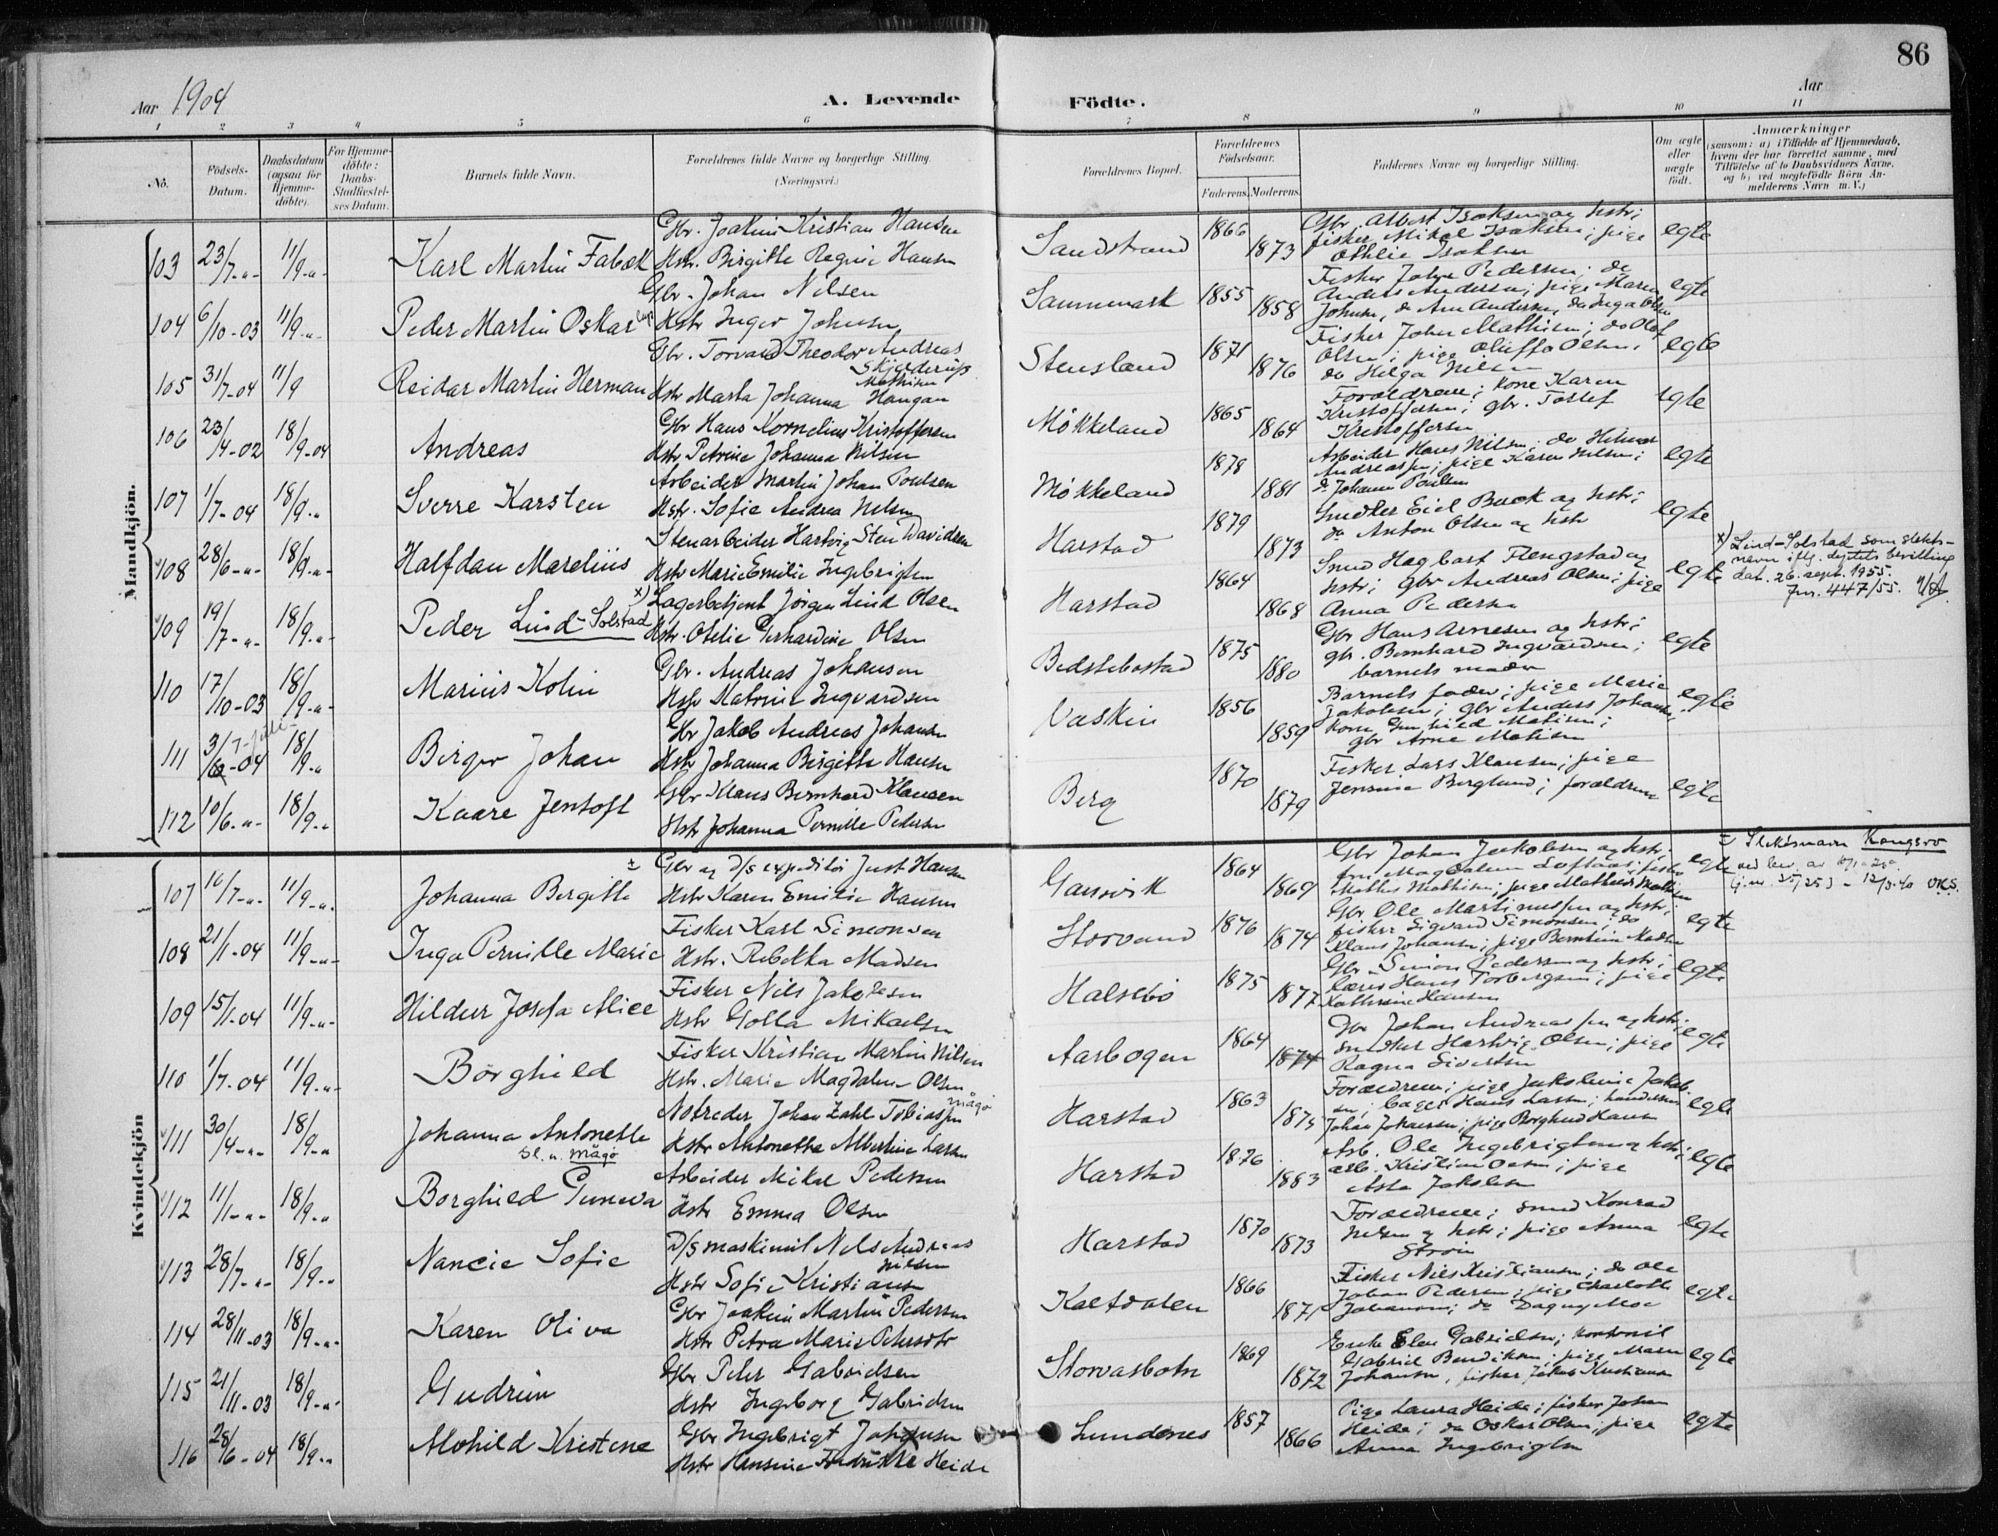 86
Aar 1904
A. Levende
Födte.
Aar
1 2 3 4 5 6 7 8 9 10 11
No.
Födsels-Datum.
Daabsdatum (ogsaa for Hjemme-döbte).
For Hjemme-döbte: Daabs-Stadfæstel-ses Datum.
Barnets fulde Navn.
Forældrenes fulde Navne og borgerlige Stilling. (Næringsvei.)
Forældrenes Bopæl.
Forældrenes Fødselsaar.
Faderens. Moderens.
Faddernes Navne og borgerlige Stilling.
Om ægte eller uægte født.
Anmærkninger
(saasom: a) i Tilfælde af Hjemmedaab, hvem der har forrettet samme, med Tilføielse af to Daabsvidners Navne. og b) ved uægtefödte Börn An-melderens Navn m. V.)
Mandkjön.
103 23/7-"- 11/9-"- Karl Martin Gbr. Joakim Kristian Hansen
Hstr. Birgitte Regine Hansen
Sandstrand 1866 1873 Gbr. Albert Isaksen og hstr; fisker Mikal Isaksen; pige Othilie Isaksen egte
104 6/10-03 11/9-"- Peder Martin Oskar Gbr. Johan Nilsen
Hstr Inger Johnsen
Sammark 1855 1858 Fisker Johan Pedersen; do Anders Andersen; pige Maren Johnsen, do Ane Andersen, do Inga Olsen egte
105 31/7-04 11/9 Reidar Martin Herman Gbr. Torvard Theodor Andreas Skjelderup Mathisen
Hstr Marta Johanna Haugan
Stensland 1871 1876 Fisker Johan Mathisen; do Olaf Olsen; pige Oluffa Olsen; do Helga Nilsen egte
106 23/4-02 18/9-04 Andreas Gbr Hans Kornelius Kristoffersen
Hstr Petrine Johanna Nilsen
Møkkeland 1865 1864 Forældrene; kone Karen Kristoffersen; gbr. Tollef Kristoffersen egte
107 1/7-04 18/9-" Sverre Karsten Arbeider Martin Johan Poulsen
Hstr. Sofie Andrea Nilsen
Møkkeland 1878 1881 Arbeider Hans Nilsen; do Hilmar Andreassen; pige Karen Nilsen; do Johanna Poulsen egte
108 28/6-"- 18/9-"- Halfdan Marelius Stenarbeider Hartvig Sten Davidsen
Hstr Marie Emilie Ingebrigtsen
Harstad 1879 1873 Snedker Eid Buck og hstr; do Anton Olsen og hstr egte
109 19/7-"- 18/9-"- Peder Lind-Solstad x) Lagerbetjent Jörgen Lind Olsen
Hstr. Otelie Gerhardine Olsen
Harstad 1864 1868 Smed Hagbart Flengstad og hstr; gbr Andreas Olsen; pige Anna Pedersen egte
x) Lind-Solstad som slekts-
navn iflg. dept.s bevilling
dat. 26. sept. 1955.
Jnr. 447/55.
110 17/10-03 18/9-"- Marius Kolin Gbr. Andreas Johansen
Hstr Katrine Ingvardsen
Bedstebostad 1875 1880 Gbr Hans Arnesen og hstr; gbr. Bernhard Ingvardsen; barnets moder egte
111 3/7-04 juli 18/9-" Birger Johan Gbr Jakob Andreas Johansen
Hstr Johanna Birgitte Hansen
Vaskin 1856 1859 Barnets fader; pige Marie Jakobsen; gbr Anders Johansen, kone Gunhild Matisen; gbr Arne Matisen egte
112 10/6-"- 18/9-" Kaare Jentoft Gbr Klaus Bernhard Klausen
Hstr Johanna Pernille Pedersen
Berg 1870 1879 Fisker Lars Klausen; pige Jensine Berglund; forældrene egte
Kvindekjön
107 16/7-"- 11/9-"- Johanna Bergitte ± Gbr og D/S expeditör Just Hansen
Hstr Karen Emilie Hansen
Gansvik 1864 1869 Gbr Johan Jakobsen og hstr; fru Magdalena; Mattis Mathisen; pige Mathilde Mathisen egte
± Slektsnavn Kongsvo
ved bev. av
12/3.40 OKS.
108 21/1-04 11/9-"- Inga Pernille Marie Fisker Karl Simonsen
Hstr. Rebekka Madsen
Storvand 1876 1874 Gbr Ole Martinussen og hstr; fisker Sigvard Simonsen; do Klaus Johansen; pige Madsen egte
109 15/1-04 11/9-"- Hildur Josefa Alice Fisker Nils Jakobsen
Hstr Golla Mikaelsen
Halsebö 1875 1877 Gbr Simon Pedersen og hstr; lærer Hans Torbergsen; pige Kathrine Hansen egte
110 1/7-04 11/9-"- Börghild Fisker Kristian Martin Nilsen
Hstr. Marie Magdalene Olsen
Aarbogen 1864 1874 Gbr Johan Andreassen og hstr; snedker Hartvig Olsen; pige Ragna Sivertsen egte
111 30/4-"- 18/9-" Johanna Antonette
Sl.n. Mågø
Notreder Johan Zahl Tobiassen Mågø
Hstr Antonette Albertine Larsen
Harstad 1863 1875 Forældrene; pige Jakobine Jakobsen; bager Hans Larsen; Johan Johansen; pige Borghild Hansen egte
112 11/1-"- 18/9-" Borghild Geneva Arbeider Mikal Pedersen
Hstr Emma Olsen
Harstad 1876 1883 Arb. Ole Ingebrigtsen og hstr; arb. Kristian Olsen; pige Asta Jakobsen egte
113 28/7-"- 18/9-" Nancie Sofie D/S maskinist Nils Andreas Nilsen
Hstr Sofie Kristiansen
Harstad 1870 1873 Forældrene; smed Konrad Nilsen og hstr; pige Anna Ström egte
114 28/11-03 18/9-"- Karen Oliva Gbr Joakim Martin Pedersen
Hstr Petra Marie Pedersdtr
Kalfdalen 1866 1871 Fisker Nils Kristiansen; do Ole Johan Pedersen; pige Charlotte Johansen; do Dagny Moe egte
115 21/11-03 18/9-"- Gudrun Gbr Peter Gabrielsen
Hstr Ingeborg Gabrielsen
Storvasbotn 1869 1872 Enke Elen Gabrielsen; kontorist Gabriel Bendiksen; pige Maren Johansen, fisker Jakob Kristiansen egte
116 28/6-04 18/9-" Alvhild Kristene Gbr Ingebrigt Johansen
Hstr Hansine Fredrikke Heide
Lundenes 1857 1866 Pige Laura Heide; fisker Johan Heide; do Oskar Olsen; pige Anna Ingebrigtsen egte